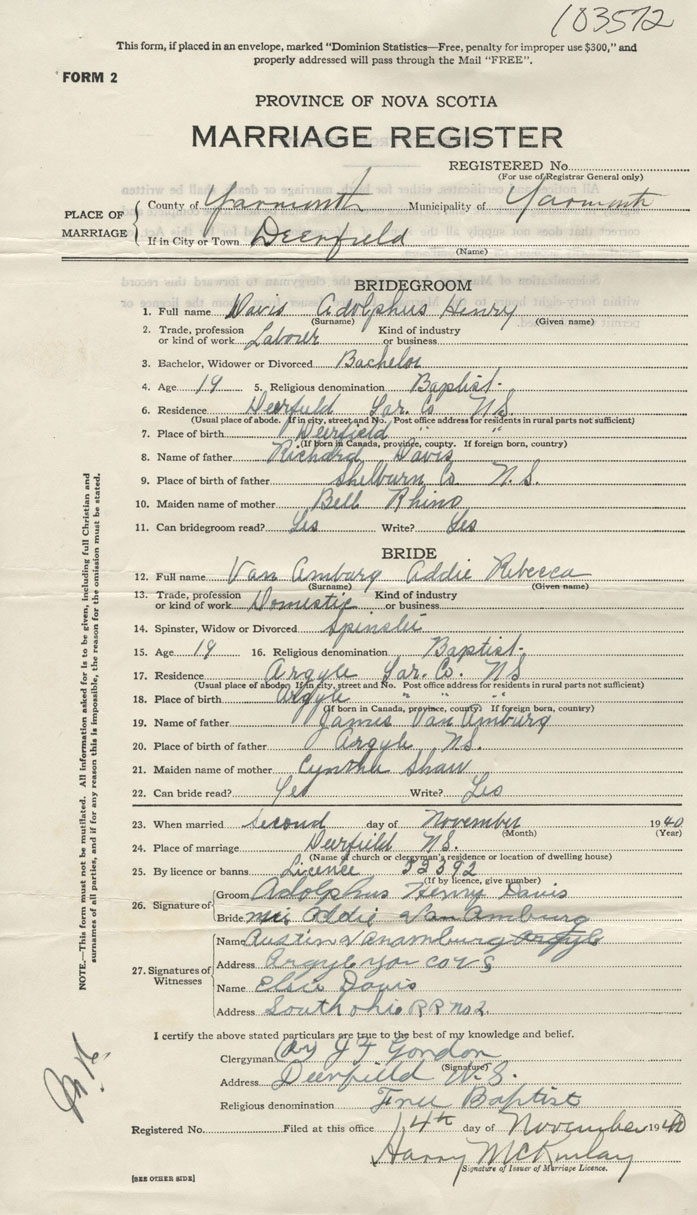 103572
This form, if placed in an envelope, marked "Dominion Statistics—Free, penalty for improper use $300," and
properly addressed will pass through the Mail "FREE".
FORM 2
PROVINCE OF NOVA SCOTIA
MARRIAGE REGISTER
REGISTERED No.
(For use of Registrar General only)
PLACE OF MARRIAGE
County of Yarmouth Municipality of Yarmouth
If in City or Town Deerfield
(Name)
BRIDEGROOM
1. Full name Davis Adolphus Henry
(Surname) (Given name)
2. Trade, profession or kind of work Labourer Kind of industry or business
3. Bachelor, Widower or Divorced Bachelor
4. Age 19 5. Religious denomination Baptist
6. Residence Deerfield Yar. Co N.S.
(Usual place of abode. If in city, street and No. Post office address for residents in rural parts not sufficient)
7. Place of birth Deerfield " "
(If born in Canada, province, county. If foreign born, country)
8. Name of father Richard Davis
9. Place of birth of father Shelburn Co N.S.
10. Maiden name of mother Bell Rhino
11. Can bridegroom read? Yes Write? Yes
BRIDE
12. Full name Van Amburg Addie Rebecca
(Surname) (Given name)
13. Trade, profession or kind of work Domestic Kind of industry or business
14. Spinster, Widow or Divorced Spinster
15. Age 19 16. Religious denomination Baptist
17. Residence Argyle Yar. Co. N.S
(Usual place of abode. If in city, street and No. Post office address for residents in rural parts not sufficient)
18. Place of birth Argyle " "
(If born in Canada, province, county. If foreign born, country)
19. Name of father James Van Amburg
20. Place of birth of father Argyle N.S.
21. Maiden name of mother Cynthia Shaw
22. Can bride read? Yes Write? Yes
23. When married Second day of November 1940
(Month) (Year)
24. Place of marriage Deerfield N.S.
(Name of church or clergyman's residence or location of dwelling house)
25. By licence or banns Licence 53392
(If by licence, give number)
26. Signature of
Groom Adolphus Henry Davis
Bride Addie Van Amburg
27. Signatures of Witnesses
Name Austin Vanamburg Argyle
Address Argyle Yar co N S
Name Elsie Davis
Address South ohio R R no 2
I certify the above stated particulars are true to the best of my knowledge and belief.
Clergyman J F Gordon
(Signature)
Address Deerfield N.S.
Religious denomination Free Baptist
Registered No. Filed at this office 4th day of November 1940
Harry McKinlay
Signature of Issuer of Marriage Licence.
[SEE OTHER SIDE]
NOTE.—This form must not be mutilated. All information asked for is to be given, including full Christian and
surnames of all parties, and if for any reason this is impossible, the reason for the omission must be stated.